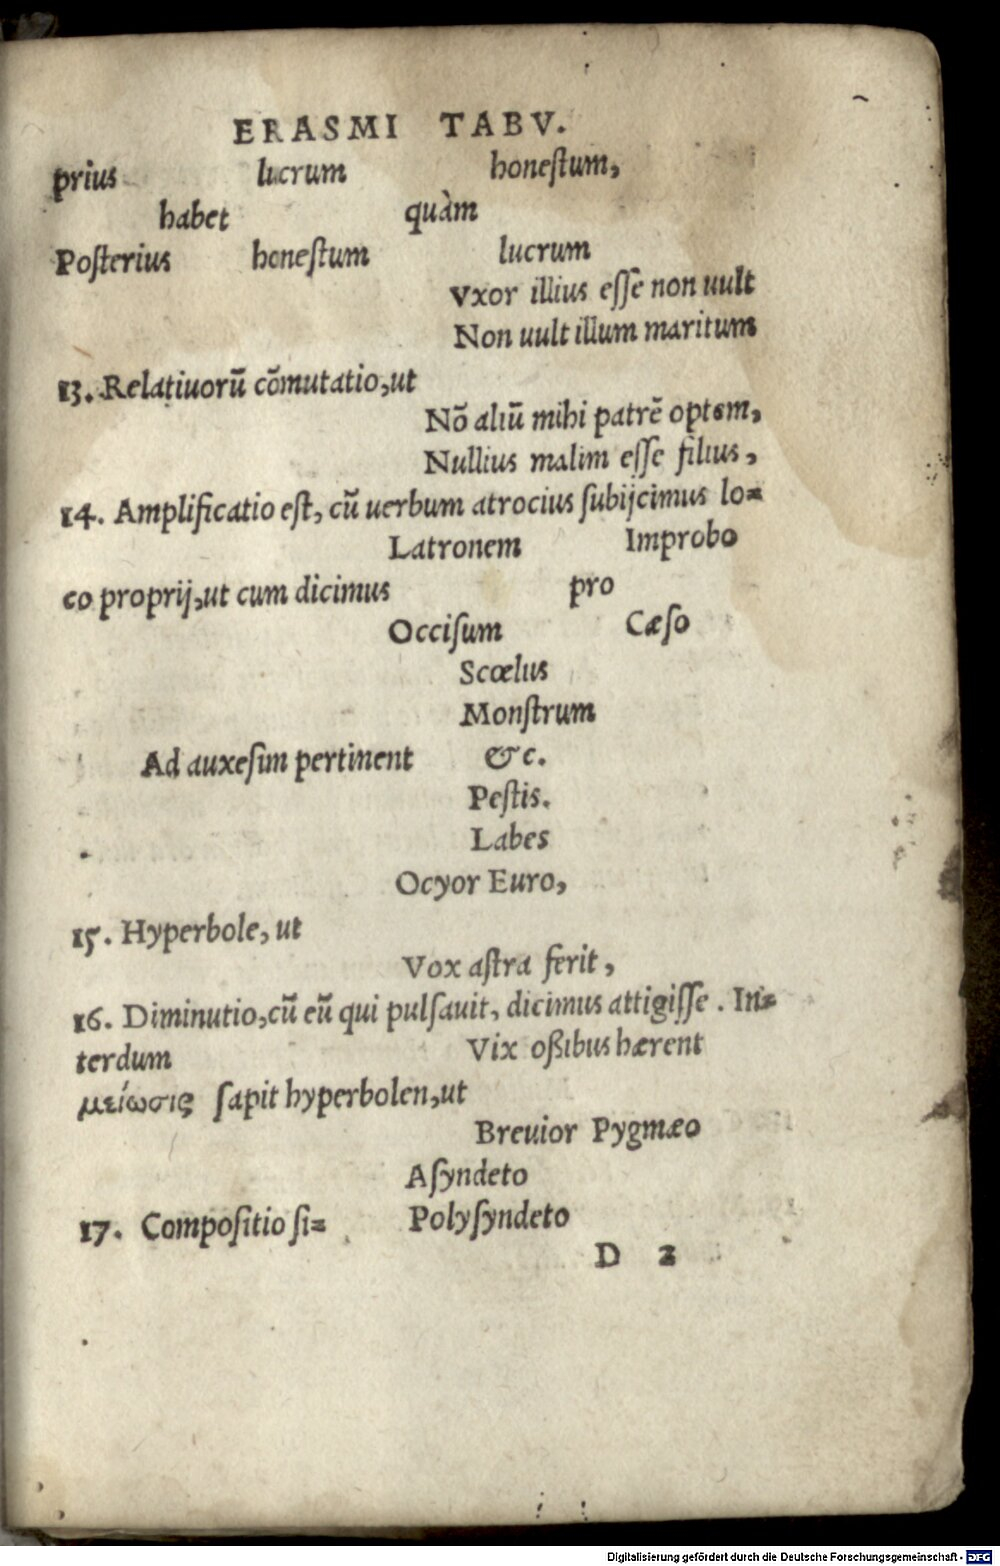 ERASMI TABV.
prius lucrum honeſtum,
habet quàm
Poſterius honeſtum lucrum
Vxor illius eſſe non uult
Non uult illum maritum
13. Relatiuorū cōmutatio,ut
Nō aliū mihi patrē optem,
Nullius malim eſſe filius,
14. Amplificatio eſt, cū uerbum atrocius ſubijcimus lo=
Latronem Improbo
co proprij,ut cum dicimus pro
Occiſum Cæſo
Scœlus
Monſtrum
Ad auxeſim pertinent &c.
Peſtis.
Labes
Ocyor Euro,
15. Hyperbole, ut
Vox aſtra ferit,
16. Diminutio,cū eū qui pulſauit, dicimus attigiſſe. In=
terdum Vix oßibus hærent
μείωσις ſapit hyperbolen,ut
Breuior Pygmæo
Aſyndeto
17. Compoſitio ſi= Polyſyndeto
D 2
Digitalisierung gefördert durch die Deutsche Forschungsgemeinschaft - DFG